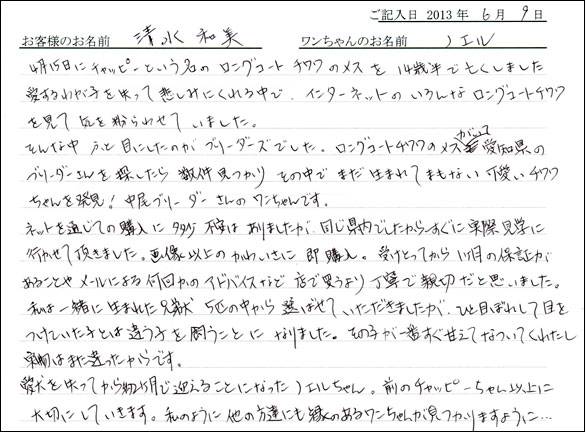 ご記入日 2013 年 6 月 9 日
お客様のお名前 清水 和美 ワンちゃんのお名前 ノエル
4月15日にチャッピーという名の ロングコートチワワのメスを 14歳半で亡くしました
愛するわが子を失って悲しみにくれる中で、インターネットの いろんな ロングコートチワワ
を見て 気を紛らわせて いました。
そんな中 ふと目にしたのが ブリーダーズでした。ロングコートチワワのメスがいて 愛知県の
ブリーダーさんを 探したら 数件見つかり その中で まだ 生まれて まもない 可愛い チワワ
ちゃんを発見! 中尾ブリーダーさんのワンちゃんです。
ネットを通じての購入に 多少 不安は ありましたが、同じ県内でしたから すぐに 実際 見学に
行かせて頂きました。画像以上の かわいさに 即購入。受けとってから 1ヶ月の保証が
あることや メールによる 何回かの アドバイスなど 店で買うより 丁寧で親切だと思いました。
私は 一緒に 生まれた 兄弟 5匹の中から 選ばせて いただきましたが、ひと目ぼれして目を
つけていた子とは 違う子を 飼うことに なりました。その子が一番すぐ甘えてなついてくれたし
実物はまた違ったからです。
愛犬を失ってから約2ヶ月で迎えることになった ノエルちゃん。前のチャッピーちゃん以上に
大切にしていきます。私のように 他の方達にも縁のあるワンちゃんが見つかりますように…